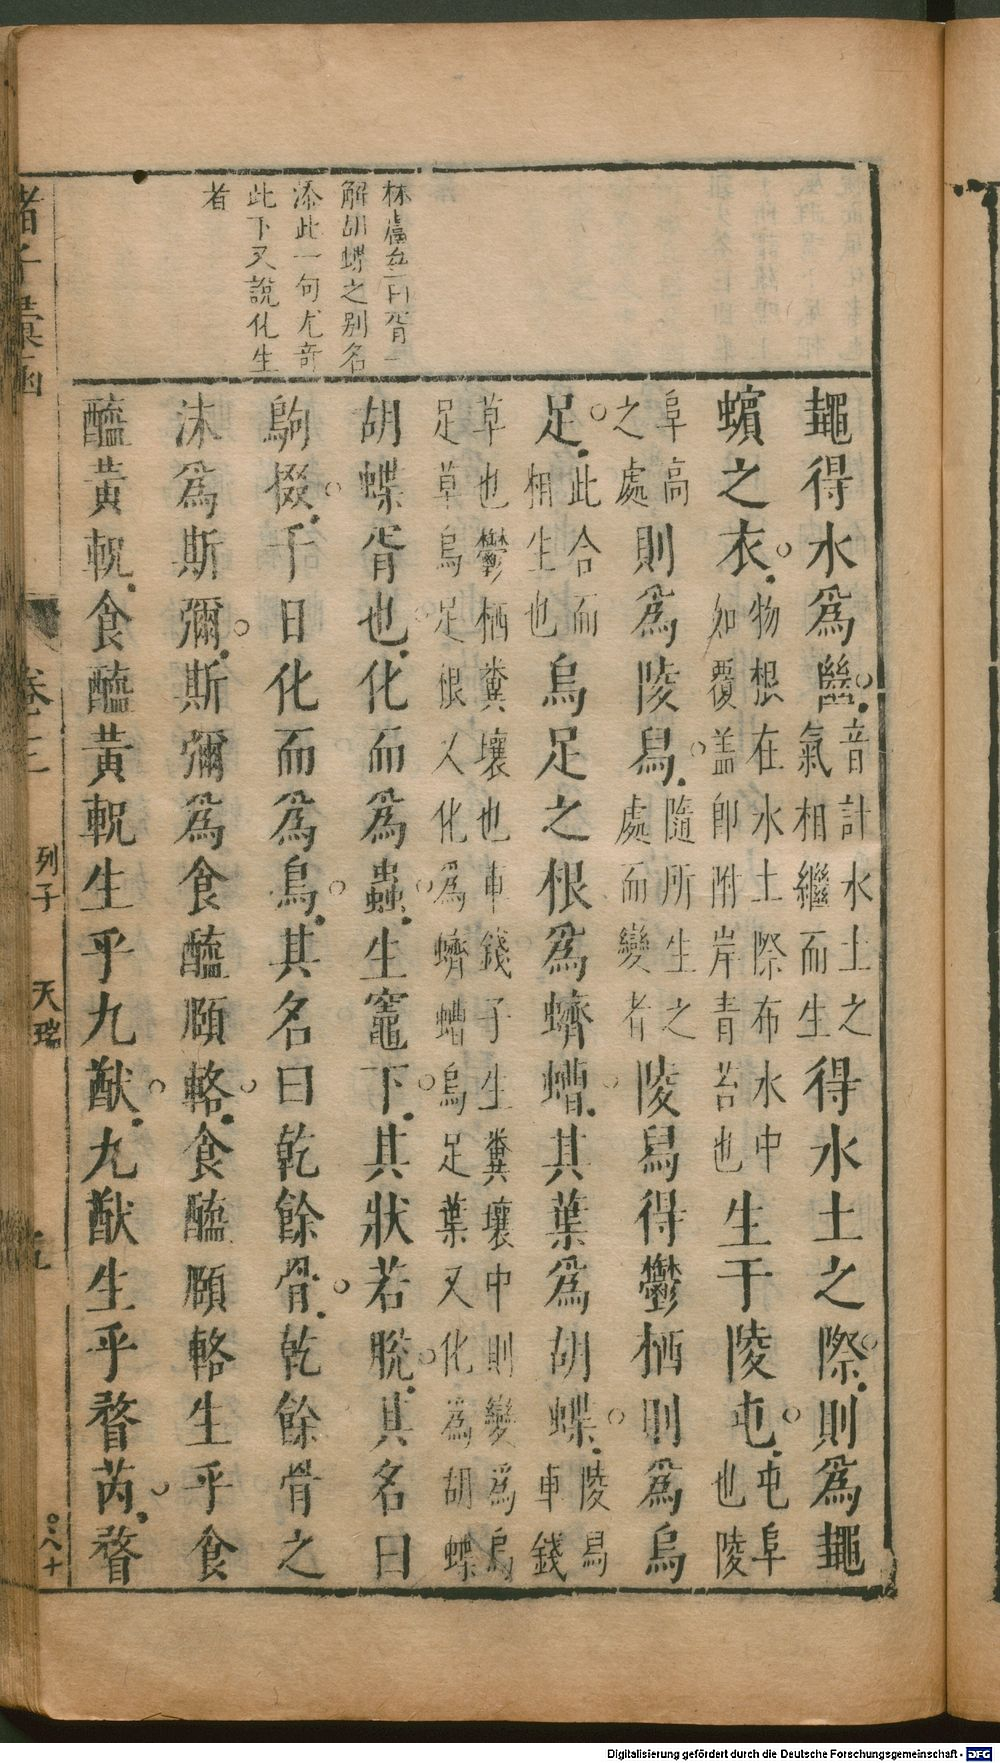 林鬳齋曰胥一
解胡蝶之別名
添此一句尤奇
此下又說化生
者
鼃得水爲㡭音計水土之氣相繼而生得水土之際則爲鼃
蠙之衣物根在水土際布水中如覆盖卽附岸青苔也生于陵屯屯阜也陵
阜高之處則爲陵舄隨所生之處而變者陵舄得鬱栖則爲烏
足此合而相生也烏足之根爲蠐螬其葉爲胡蝶陵舄車錢
草也鬱栖糞壤也車錢子生糞壤中則變爲烏足草烏足根乂化爲蠐螬烏足葉又化為胡蝶
胡蝶胥也化而爲蟲生竈下其狀若脫其名曰
駒掇千日化而爲鳥其名曰乾餘骨乾餘骨之
沫爲斯彌斯彌爲食醯頤輅食醯頤輅生乎食
醯黃軦食醯黃軦生乎九猷九猷生乎瞀芮瞀
諸子彙函
卷之二
列子
天瑞
五
Digitalisierung gefördert durch die Deutsche Forschungsgemeinschaft - DFG